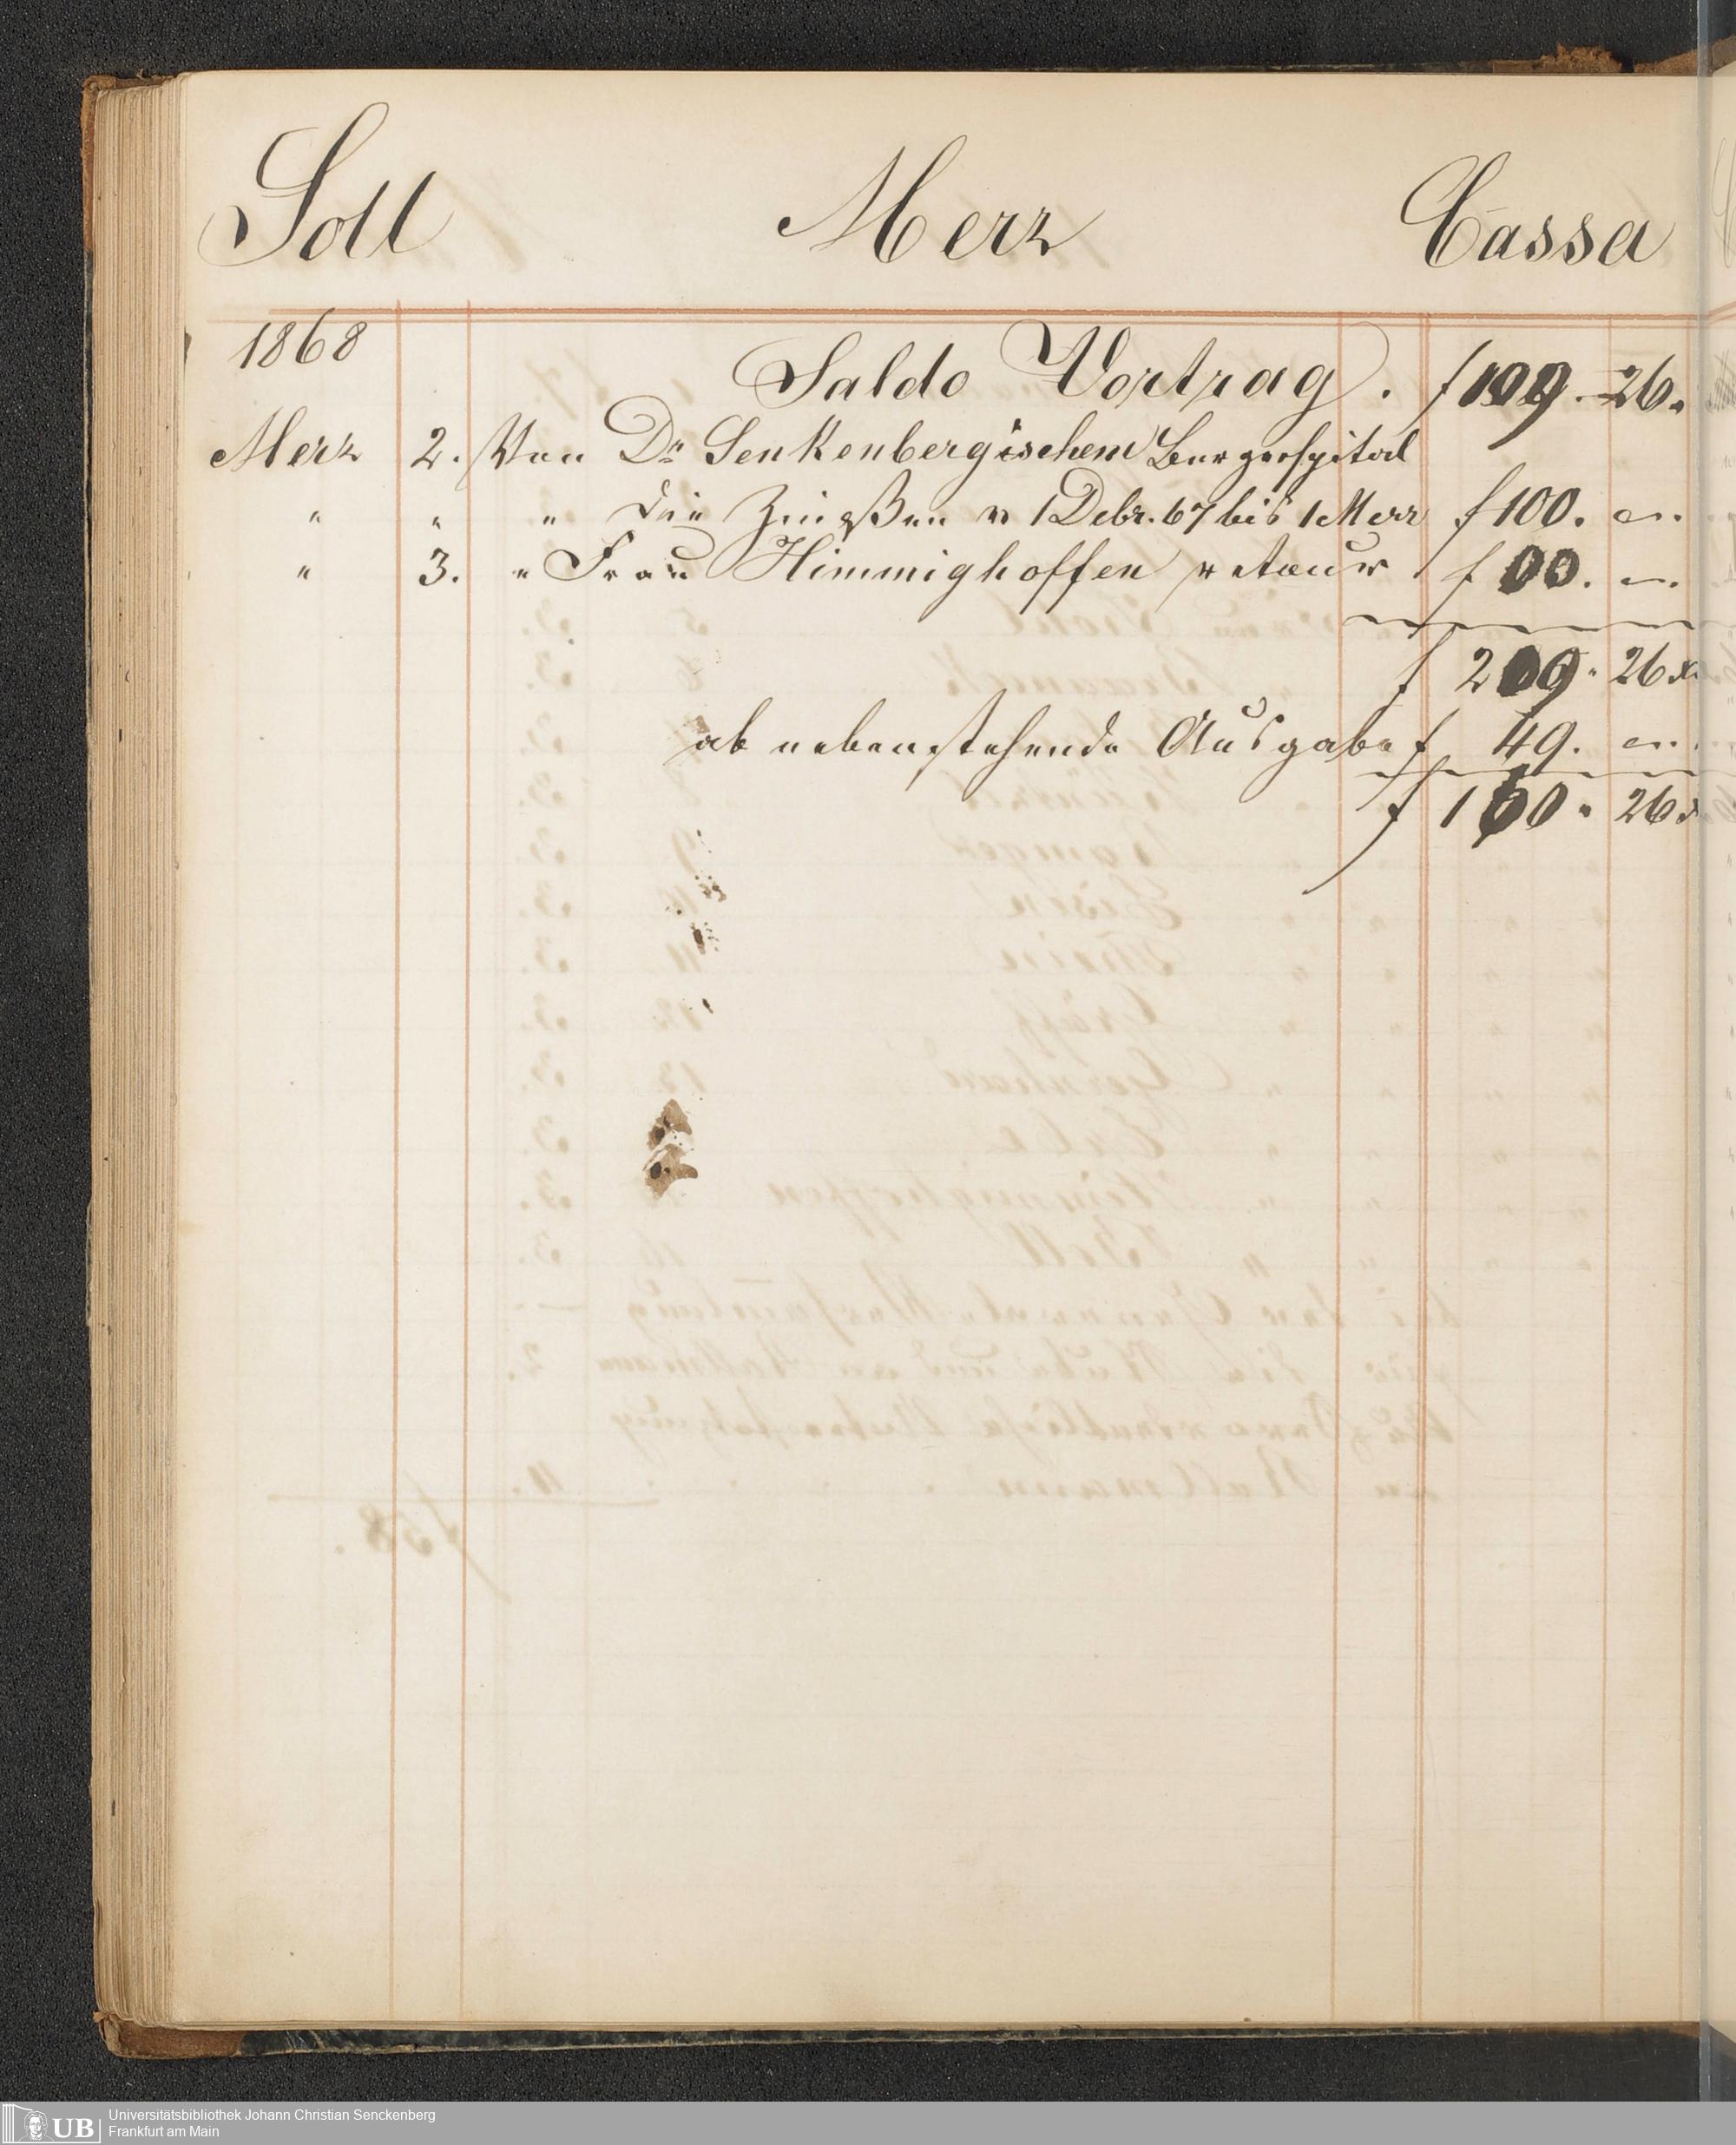 Soll Merz Cassa
1868
Saldo Vortrag. f 109. 26.
Merz 2. Von Dr Senkenbergischem Burgerspital
" " " die Zinßen v 1 Debr. 67 bis 1 Merz f 100. —.
" 3. " Frau Himmighoffen retour f 00. —.
f 209. 26 x
ab nebenstehende Ausgabe f 49. —.
f 160. 26 x
UB Universitätsbibliothek Johann Christian Senckenberg
Frankfurt am Main